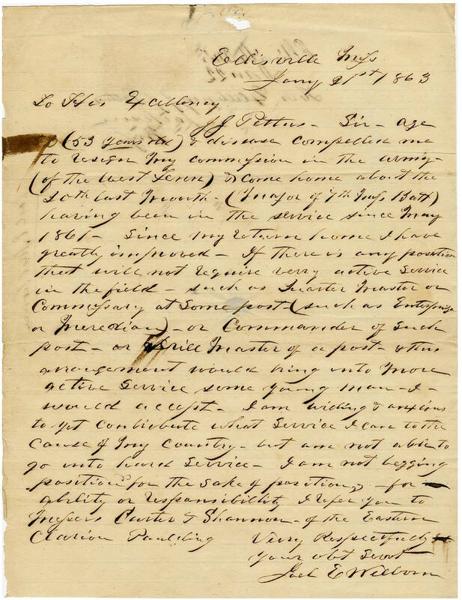 Ellisville Miss
Jany 21st 1863
To His Excellency
J J Pettus - Sir - age
(53 years old) & disease compelled me
to resign my commission in the army
(of the West Tenn) & come home about the
20th last Month - (Major of 7th Miss Batt)
having been in the service since May
1861 - Since my return home I have
greatly improved - If there is any position
that will not require very active service
in the field - such as Quarter Master or
Commissary at some post (such as Enterprise
or Meredian) - or Commander of such
post - or Drill Master of a post & this
arrangement would bring into more
active service some young man - I
would accept - I am willing & anxious
to yet contribute what service I can to the
cause of my country - but am not able to
go into hard service - I am not begging
position for the sake of position - for
ability or responsibility I refer you to
Messrs Carter & Shannon - of the Eastern
Clarion Paulding Very Respectfully
your obt Servt
Joel E Welborn